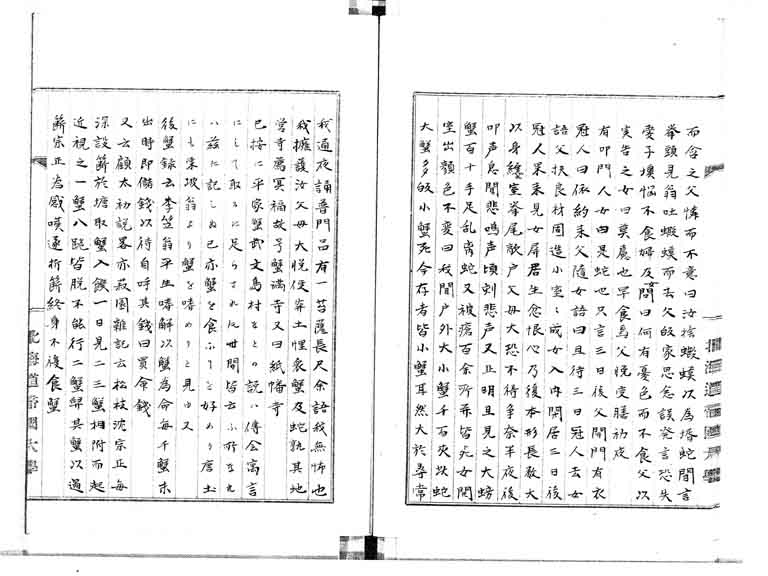 而含之父憐而不意曰汝捨蝦蟆以為婿蛇聞言
拳頭見翁吐蝦蟆而去父皈家思念誤發言恐失
愛子懊悩不食婦及問曰何有憂色而不食父以
実告之女曰莫慮也早食焉父悦变膳初夜
有叩門人女曰是蛇也只言三日後父開門有衣
冠人曰依約来父随女語曰且待三日冠人去女
語父択良材固造小室成女入内閑居三日後
冠人果来見女屏居生忿恨心乃復本形長数丈
以身纏室挙尾敲戸父母大恐不得争奈半夜後
叩声息聞悲鳴声頃刻悲声又止明旦見之大螃
蟹百十手足乱蛇又被瘡百余所弄皆死女開
室出顔色不変曰我聞戸外大小蟹千百夾蛇
大蟹多皈小蟹死今存者皆小蟹耳然大於尋常
我通夜誦普門品有一菩薩長尺余語我無怖也
我擁護汝父母大悦便穿土埋衆蟹及蛇就其地
営寺薦冥福故号蟹満寺又曰紙幡寺
已按に平家蟹武文島村なとの説ハ傅会寓言
にして取るに足らされ共世間皆云ふ所なれ
ハ茲に記しぬ已亦蟹を食ふヿを好めり唐土
にも東坡翁より蟹を嗜めりと見ゆ又
後蟹録云李笠翁平生嗜解以蟹為命毎于蟹未
出時即儲銭以待自呼其銭曰買命銭
又云顧太初説畧亦菽園雑記云松枝沈宗正毎
深設籪於塘取蟹入饌一日見二三蟹相附而起
近視之一蟹八跪皆脱不能行二蟹舁其蟹以過
籪宗正為感嘆遂折籪終身不復食蟹
北海道帝國大學